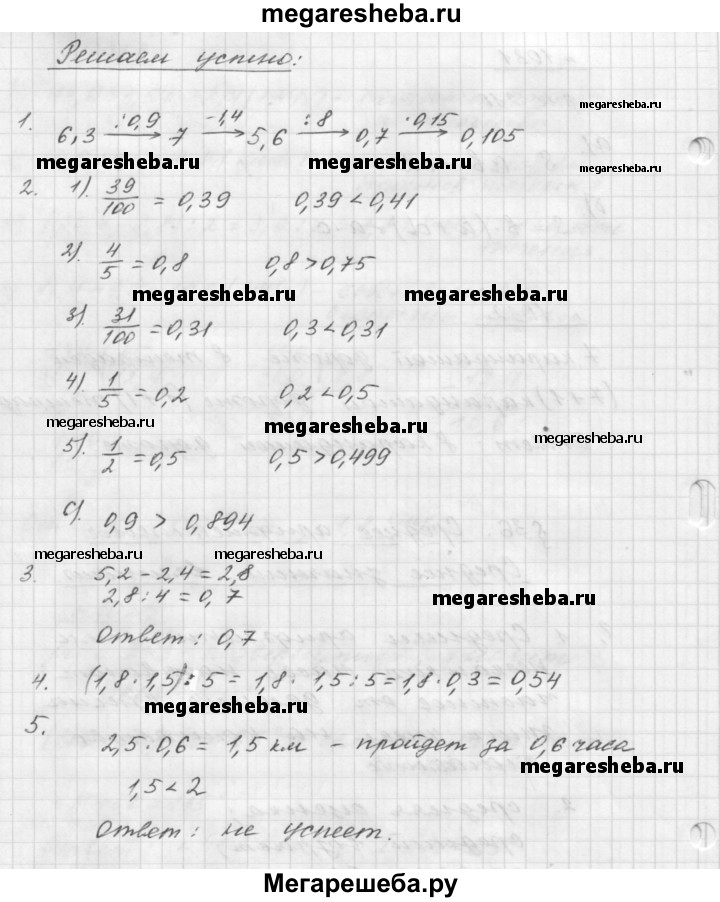 megaresheba.ru
Решаем устно:
megaresheba.ru
1. 6,3 :0,9 7 -1,4 5,6 :8 0,7 ·0,15 0,105
megaresheba.ru megaresheba.ru
2. 1). 39/100 = 0,39 0,39 < 0,41
2). 4/5 = 0,8 0,8 > 0,75
megaresheba.ru megaresheba.ru
3). 31/100 = 0,31 0,3 < 0,31
4). 1/5 = 0,2 0,2 < 0,5
megaresheba.ru megaresheba.ru
5). 1/2 = 0,5 0,5 > 0,499
с). 0,9 > 0,894
megaresheba.ru megaresheba.ru
3. 5,2 - 2,4 = 2,8
2,8 : 4 = 0,7
megaresheba.ru
Ответ: 0,7
4. (1,8 · 1,5) : 5 = 1,8 · 1,5 : 5 = 1,8 · 0,3 = 0,54
megaresheba.ru
5. 2,5 · 0,6 = 1,5 км - пройдет за 0,6 часа
megaresheba.ru
1,5 < 2
Ответ: не успеет.
Мегарешеба.ру